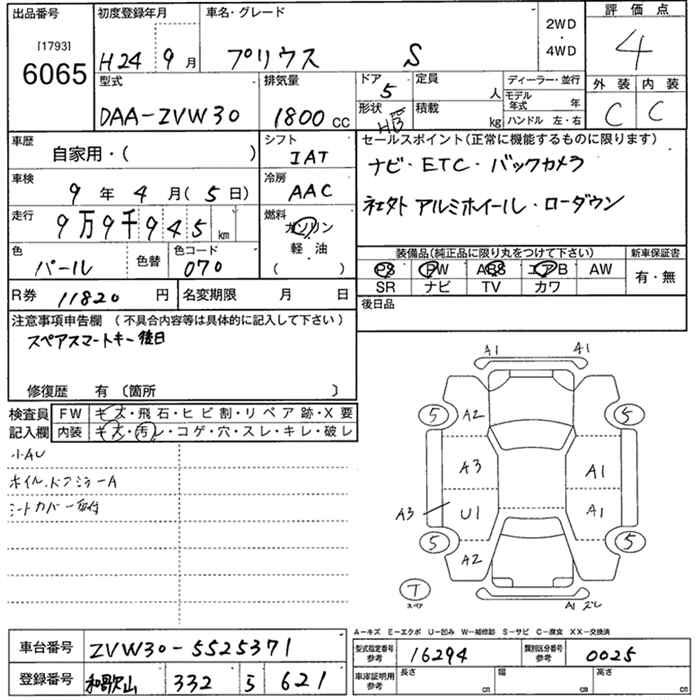 出品番号
[1793]
6065
初度登録年月
H24 9 月
車名・グレード
プリウス S
2WD
・
4WD
評価点
4
外装 内装
C C
型式
DAA-ZVW30
排気量
1800 cc
ドア
5
形状
HB
定員
人
積載
kg
ディーラー・並行
モデル年式 年
ハンドル 左・右
車歴
自家用・( )
シフト
IAT
車検
9 年 4 月 (5 日)
冷房
AAC
走行
9万9千945 km
燃料
ガソリン
・
軽油
( )
色
パール
色替
色コード
070
R券 11820 円
名変期限 月 日
セールスポイント(正常に機能するものに限ります)
ナビ・ETC・バックカメラ
社外 アルミホイール・ローダウン
装備品(純正品に限り丸をつけて下さい)
PS PW ABS エアB AW
SR ナビ TV カワ
新車保証書
有・無
後日品
注意事項申告欄 (不具合内容等は具体的に記入して下さい)
スペアスマートキー後日
修復歴 有 〔箇所 〕
検査員記入欄
FW キズ・飛石・ヒビ割・リペア跡・X要
内装 キズ・汚レ・コゲ・穴・スレ・キレ・破レ
小AU
ホイル、ドアミラーA
シートカバー貼付
A1 A1
5 A2 5
A3 A1
A3 U1 A1
5 A2 5
T
スペア
A1 ズレ
A−キズ E−エクボ U−凹み W−補修跡 S−サビ C−腐食 XX−交換済
車台番号 ZVW30-5525371
登録番号 和歌山 332 5 621
型式指定番号
参考
16294
類別区分番号
参考
0025
車庫証明用
参考
長さ cm
幅 cm
高さ cm